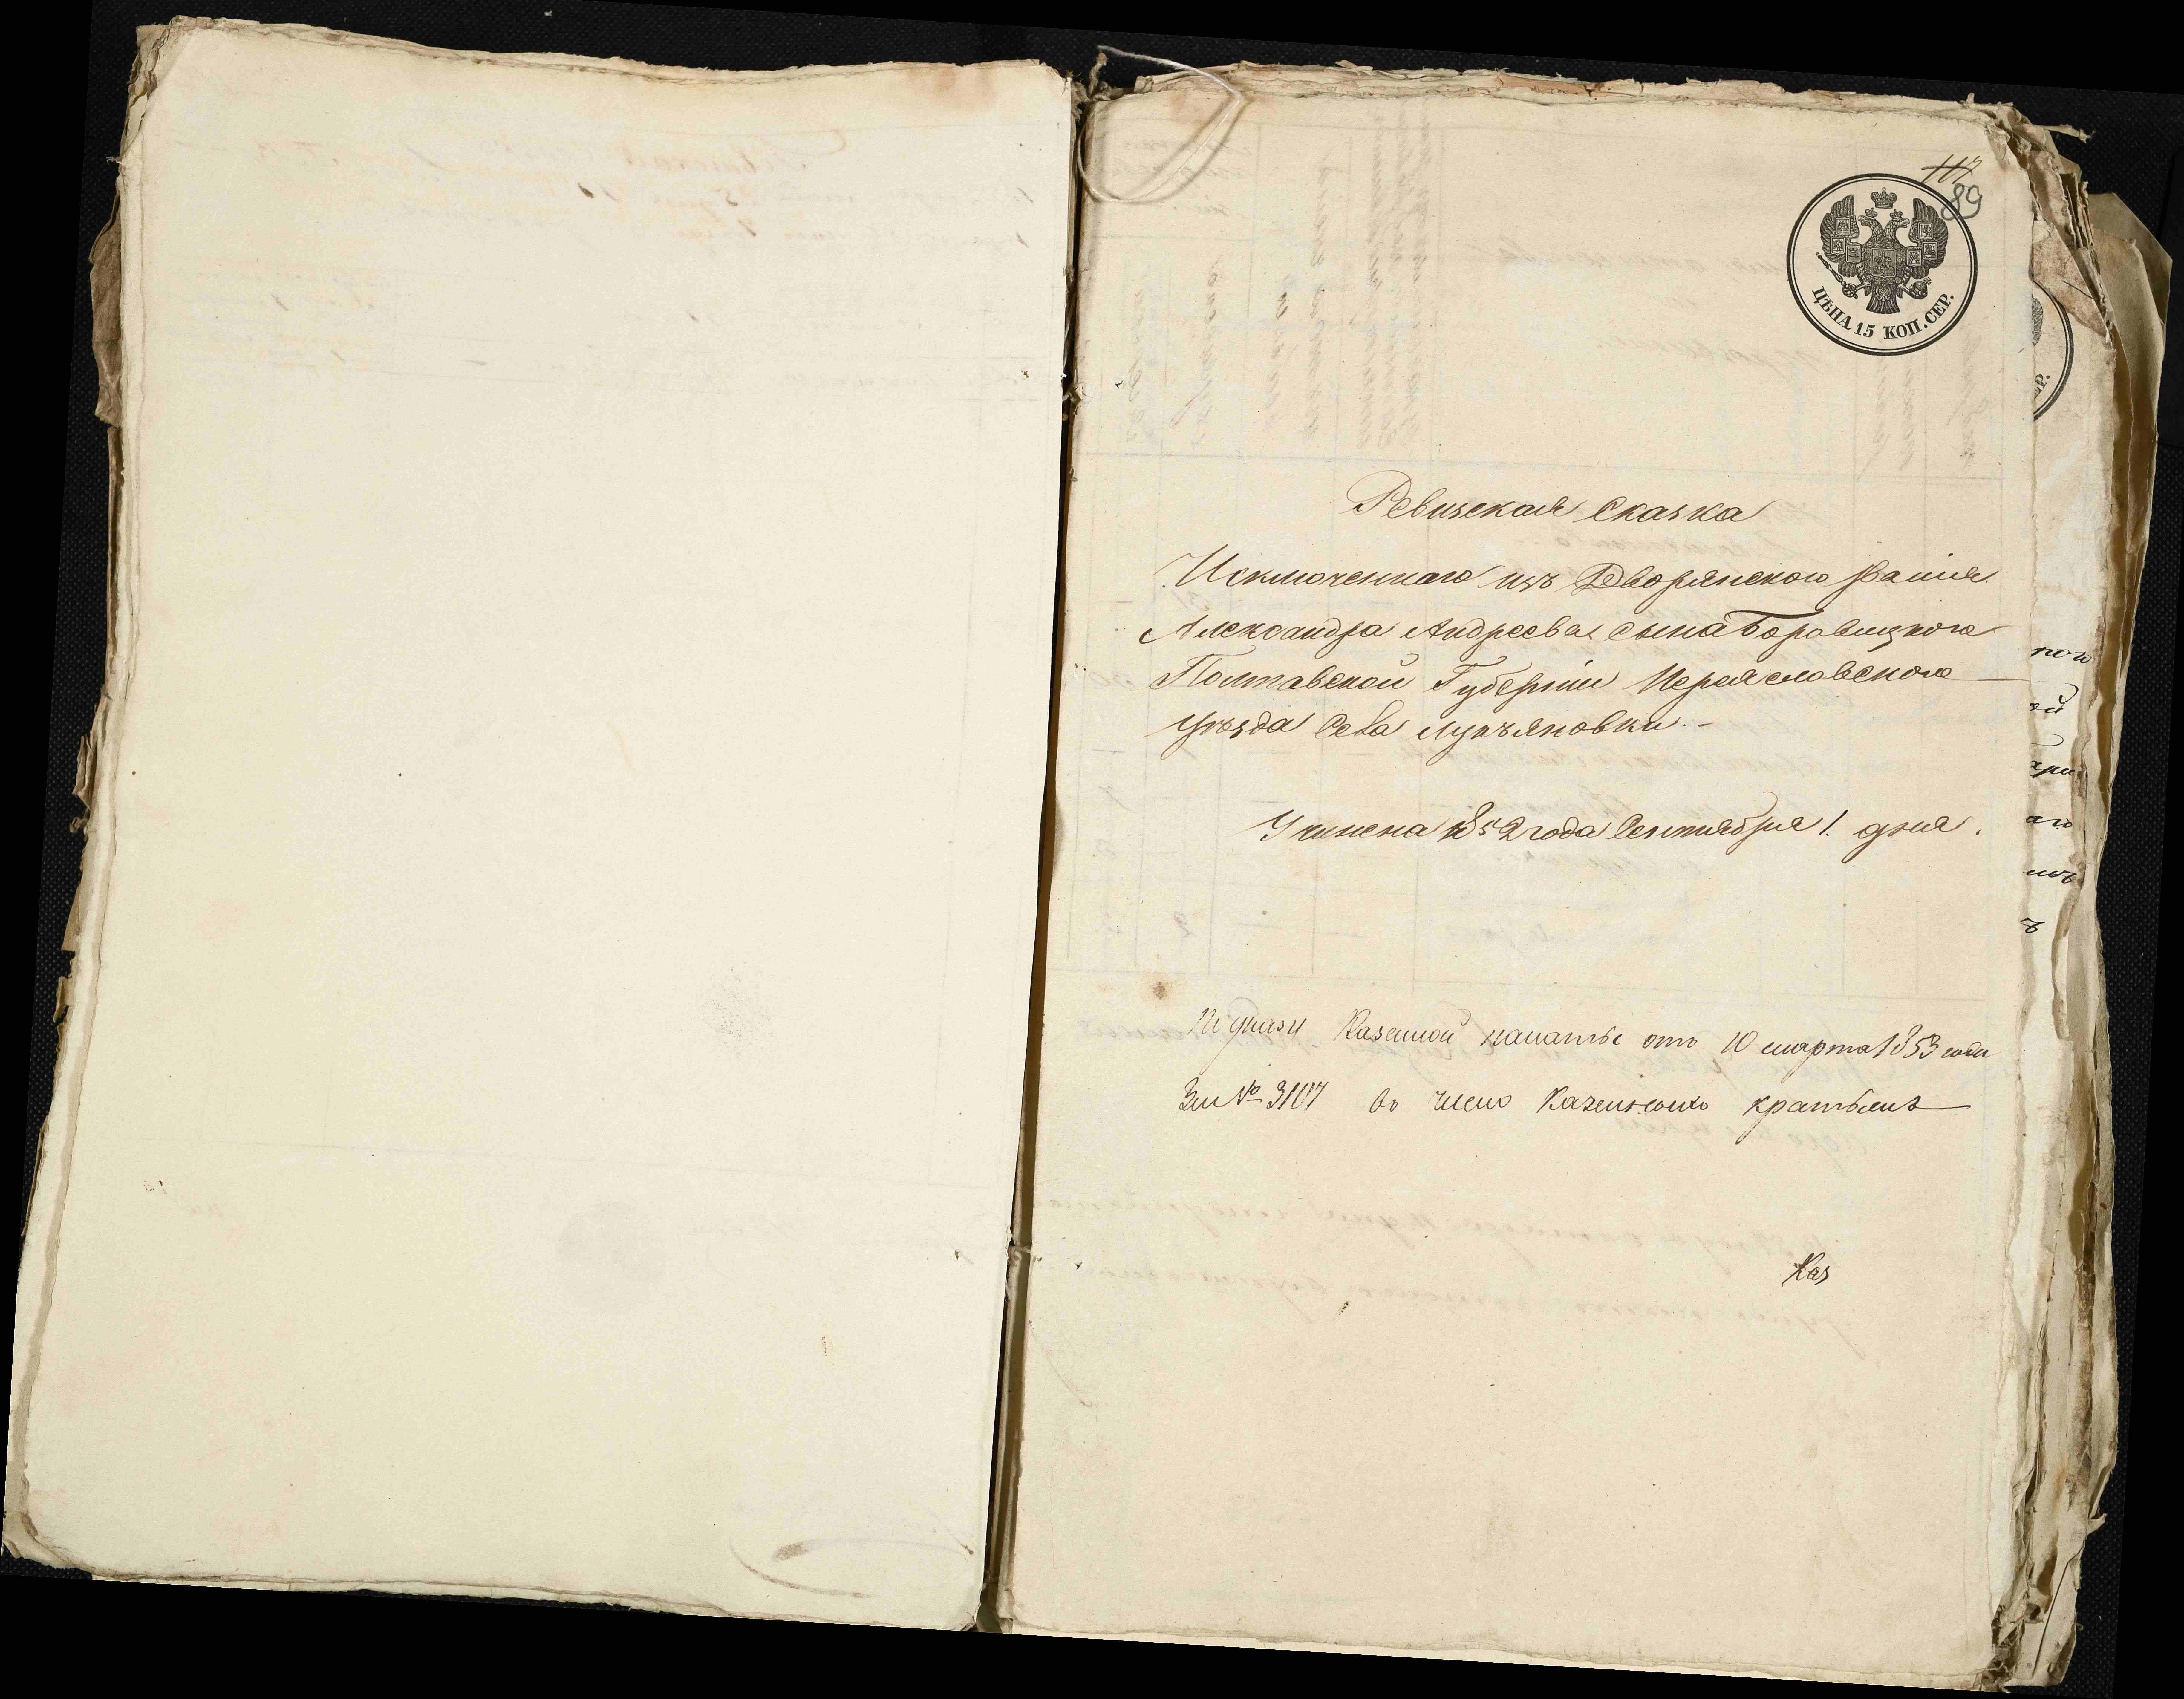 117
89
ЦѢНА 15 КОП. СЕР.
Ревизская Сказка
Исключеннаго изъ Дворянского званія
Александра Андреева сына Боровицкого
Полтавской Губерніи Переяславского
уѣзда Села Лукъяновки.-
Учинена 1852 года Сентября 1. дня.
По указу Казенной палаты отъ 10 марта 1853 года
За № 3107 въ число Казенныхъ крестьянъ
Каз